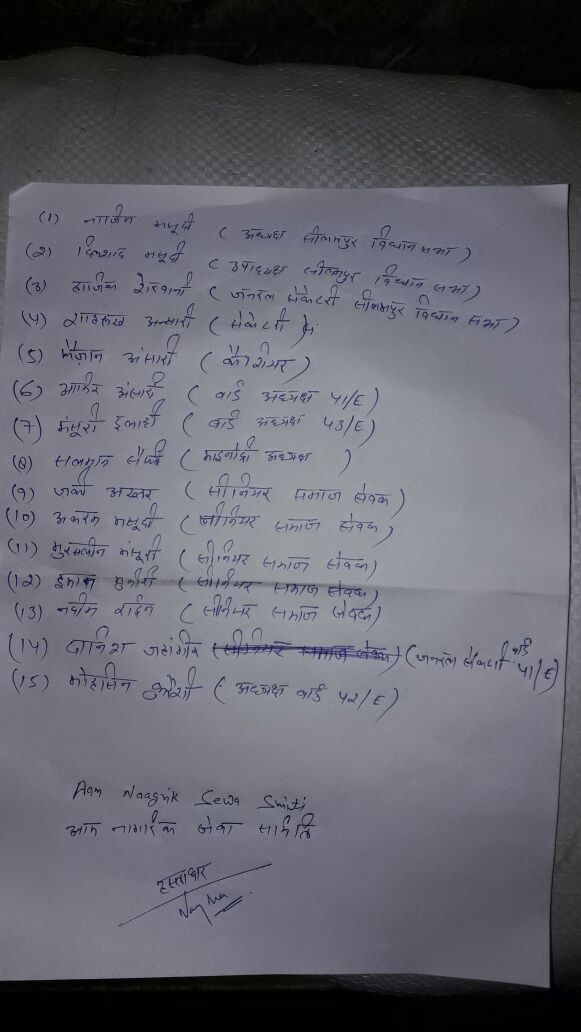 (1) नाजिम मसूदी ( अध्यक्ष सीलमपुर विधान सभा )
(2) दिलशाद मसूदी ( उपाध्यक्ष सीलमपुर विधान सभा )
(3) हाजिक शेरवानी ( जनरल सेकेटरी सीलमपुर विधान सभा )
(4) शाहरूख अन्सारी ( सेकेटरी )
(5) फैज़ान अंसारी ( कैशियर )
(6) आमिर अंसारी ( वार्ड अध्यक्ष 41/E )
(7) मंसूरी इलाही ( वार्ड अध्यक्ष 43/E )
(8) सलमान सैफी ( माइनोर्टी अध्यक्ष )
(9) जकी अख्तर ( सीनियर समाज सेवक )
(10) अकरम मसूदी ( सीनियर समाज सेवक )
(11) मुरसलीन मंसूरी ( सीनियर समाज सेवक )
(12) इमरान ( सीनियर समाज सेवक )
(13) नदीम राईन ( सीनियर समाज सेवक )
(14) दानिश जहांगीर ( सीनियर समाज सेवक ) ( जनरल सेकेटरी वार्ड 41/E )
(15) मोहसिन कुरैशी ( अध्यक्ष वार्ड 42/E )
Aam Naagrik Sewa Smiti
आम नागरिक सेवा समिति
हस्ताक्षर